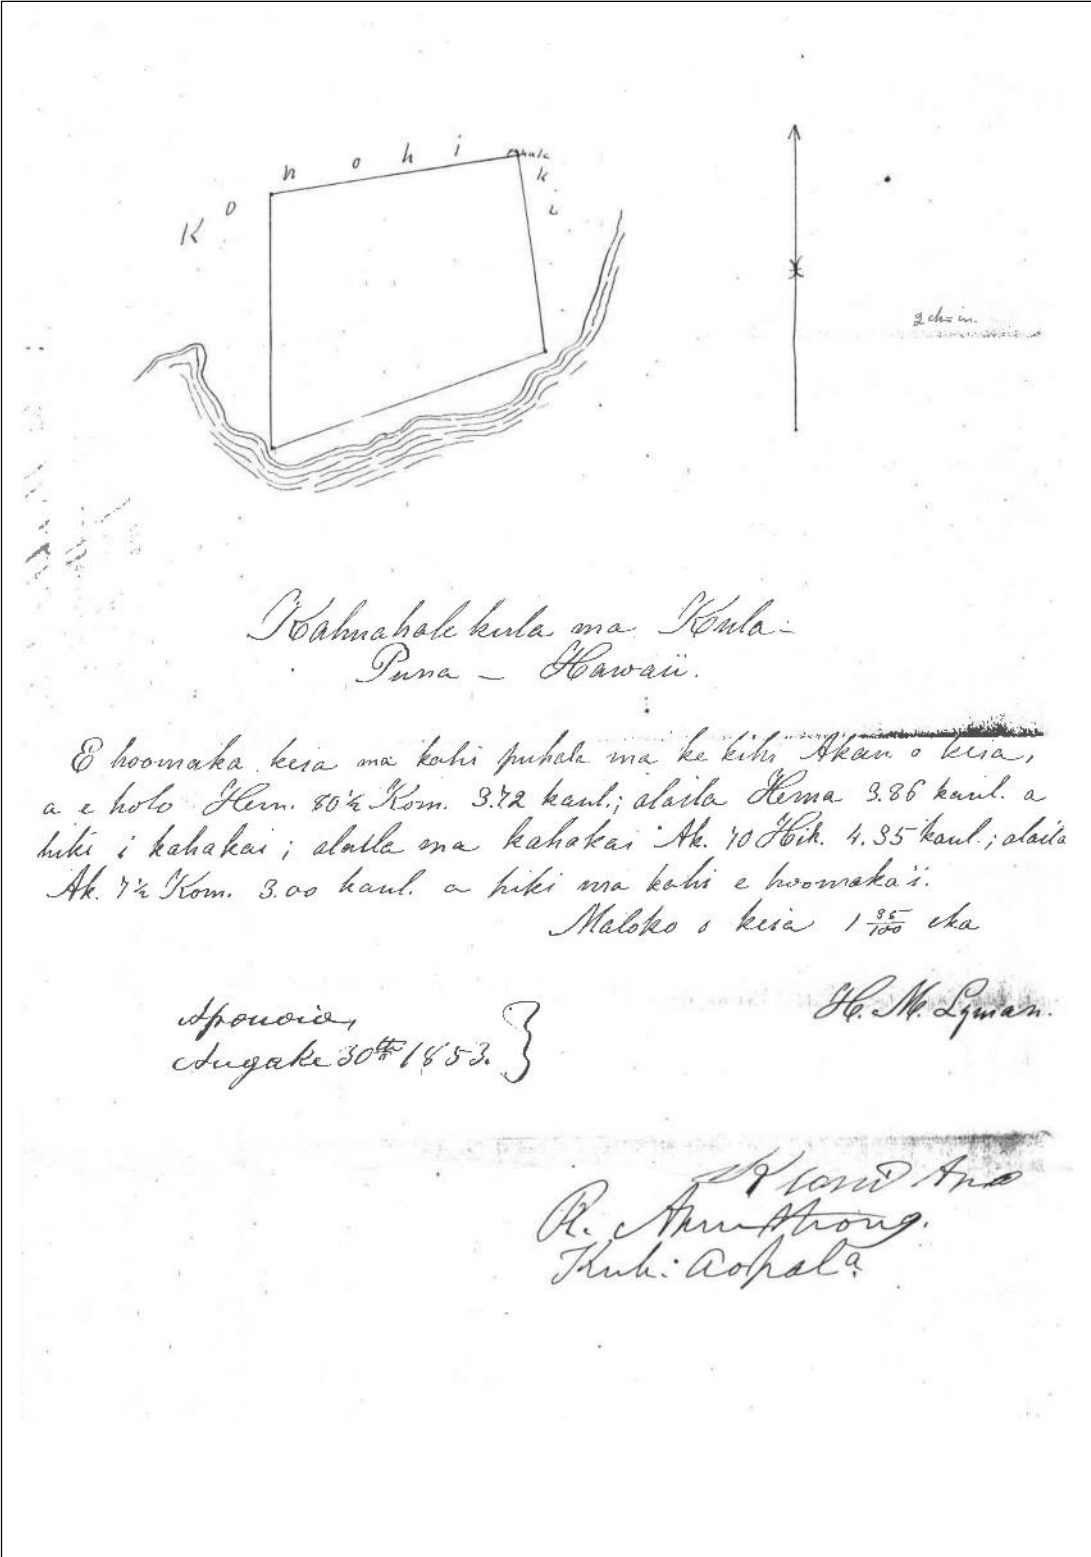 Konohiki
puhala
2 chain.
Kahuahale kula ma Kula –
Puna – Hawaii.
E hoomaka keia ma kahi puhala ma ke kihi Akau o keia,
a e holo Hem. 80½ Kom. 3.72 kaul.; alaila Hema 3.86 kaul. a
hiki i kahakai; alaila ma kahakai Ak. 70 Hik. 4.35 kaul.; alaila
Ak. 7½ Kom. 3.00 kaul. a hiki ma kahi e hoomaka'i.
Maloko o keia 1 35/100 eka
H. M. Lyman.
Aponoia,
Augake 30th 1853.
Keoni Ana
R. Armstrong.
Kuhi: Aopala